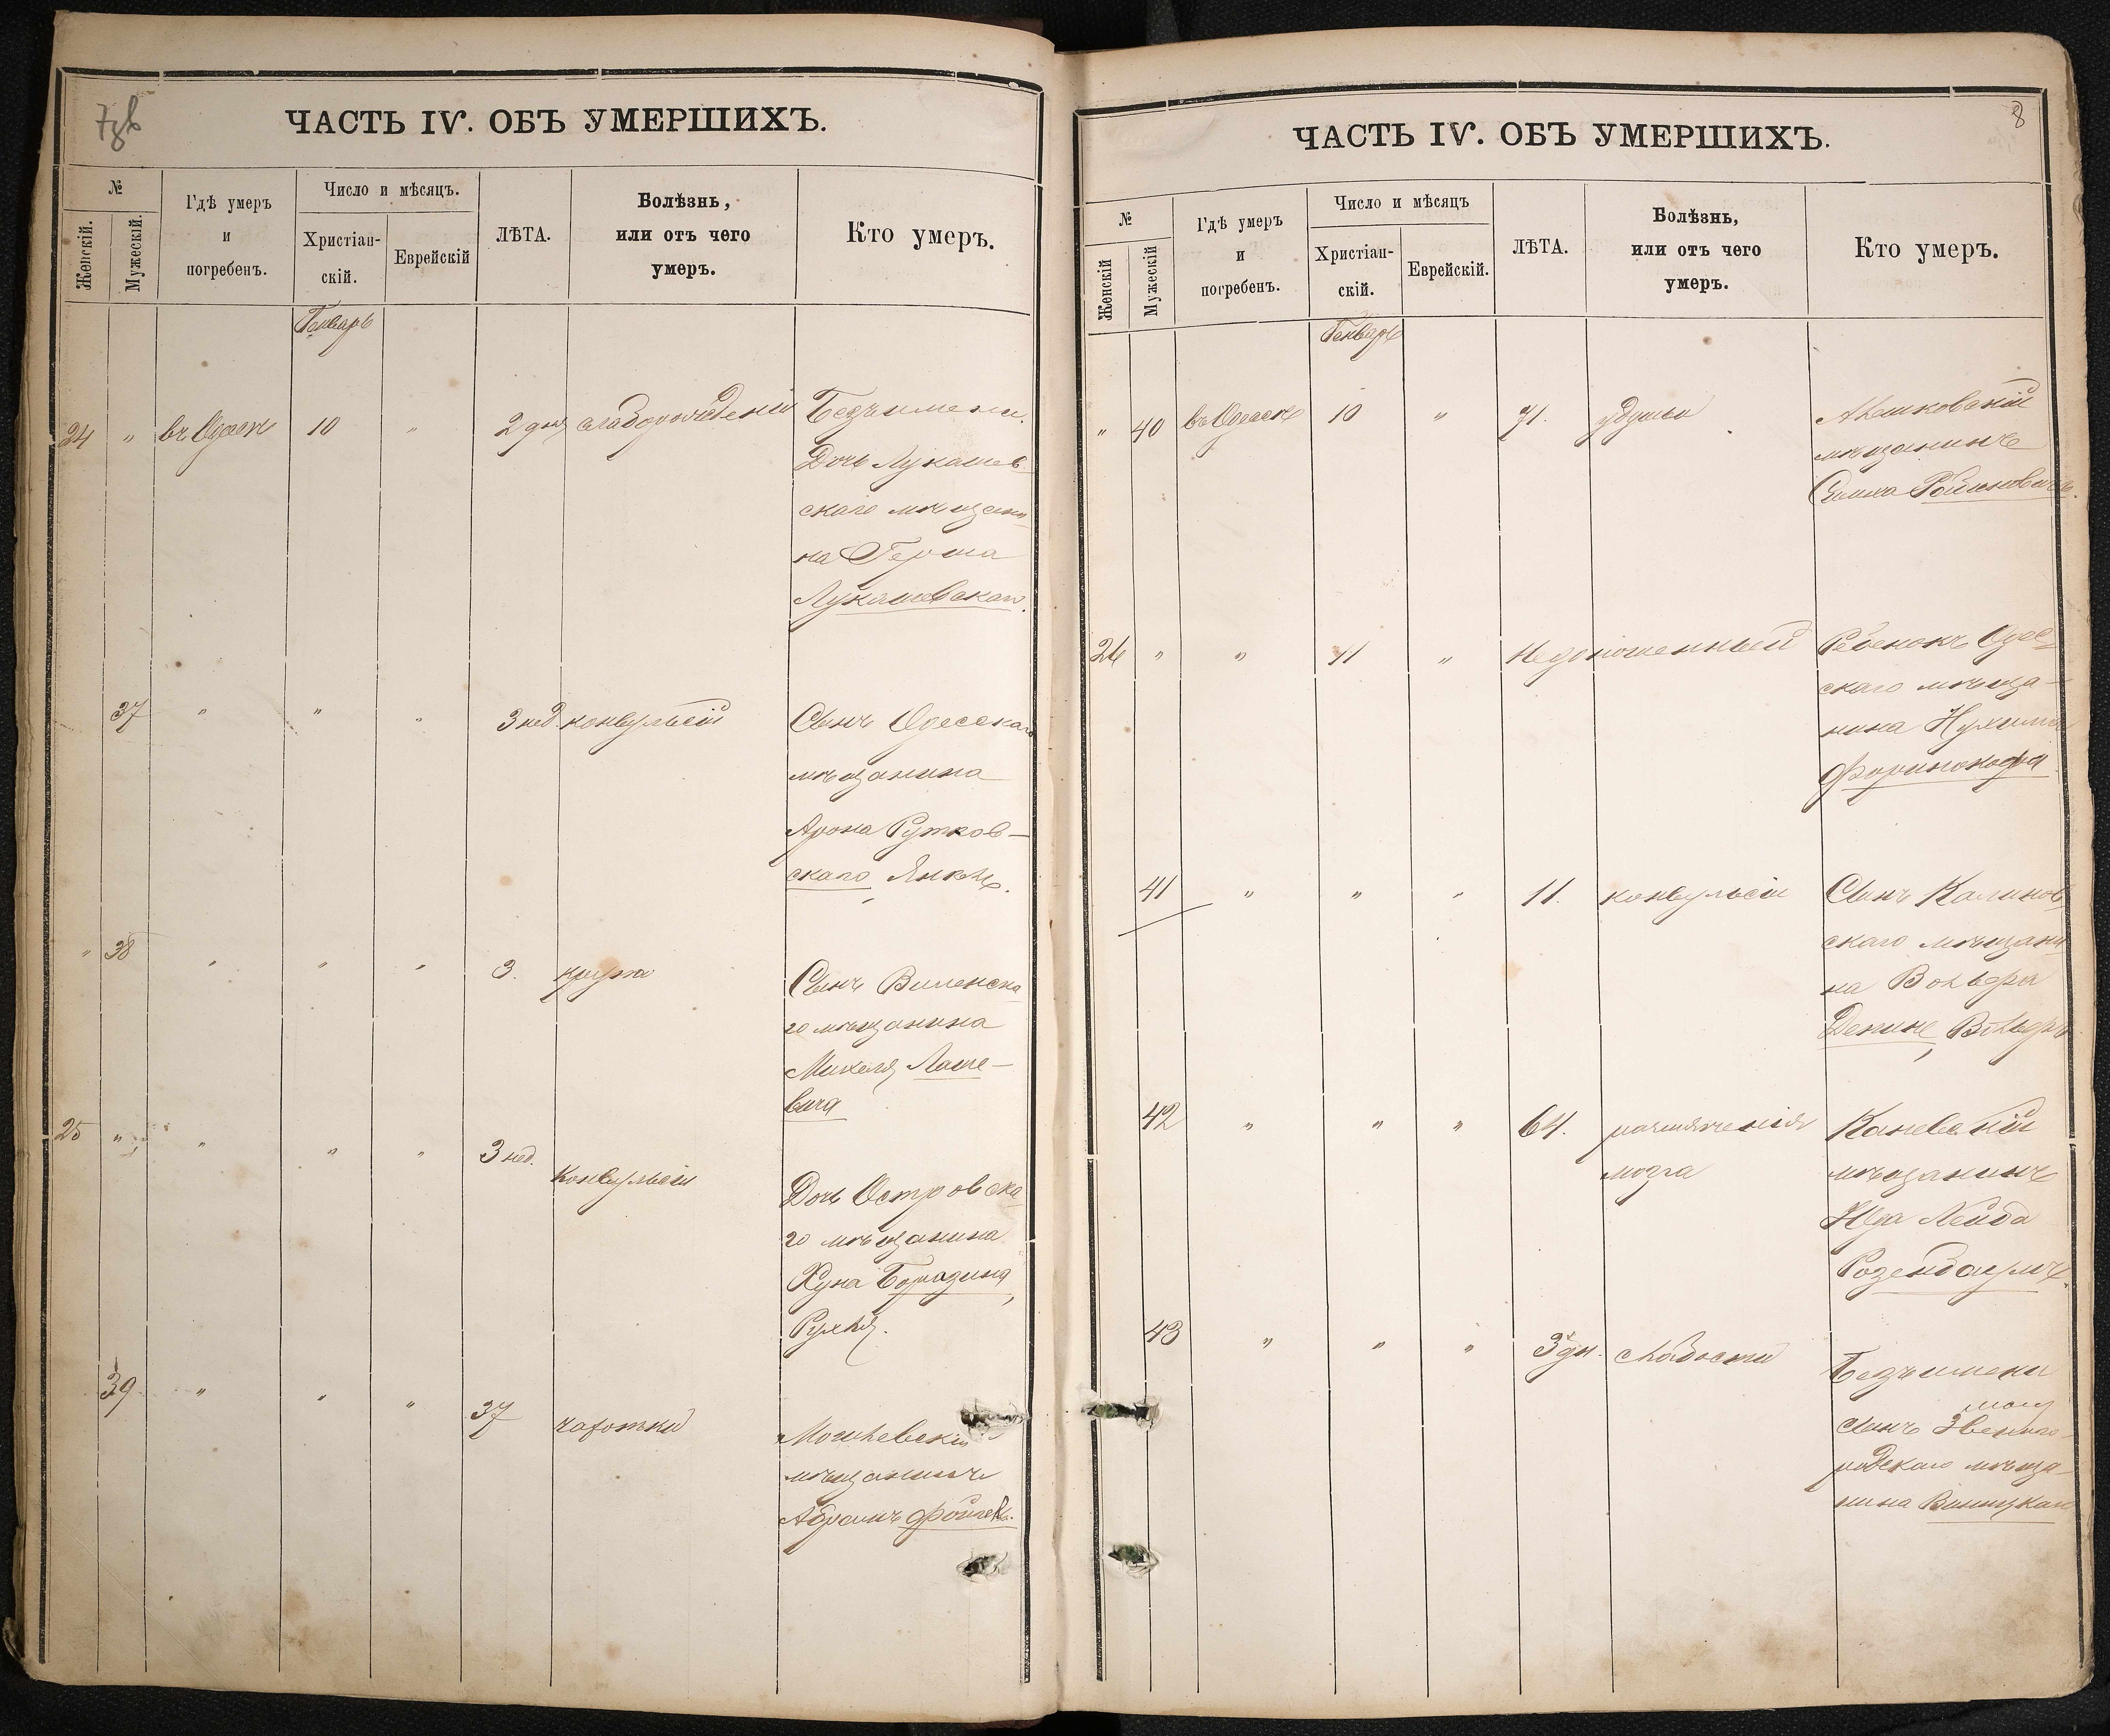 ЧАСТЬ IV. ОБЪ УМЕРШИХЪ.
№
Женскій.
Мужескій.
Гдѣ умеръ
и
погребенъ.
Число и мѣсяцъ.
Христіан-
скій.
Еврейскій
ЛѢТА.
Болѣзнь,
или отъ чего
умеръ.
Кто умеръ.
Генварь
24 " въ Одессѣ 10 " 2 дня слаборожденія Безъимени.
Дочь Лукашев-
скаго мѣщани-
на Герша
Лукашевскаго.
37 " " " 3 нед. конвульсій Сынъ Одесскаго
мѣщанина
Арона Рутков-
скаго, Янкель.
" 38 " " " 3. крупа Сынъ Виленска-
го мѣщанина
Михеля Лаше-
вича
25 " " " " 3 нед. Конвульсій
Дочь Островска-
го мѣщанина
Хуна Бородина,
Рухля.
39 " " " 37 чахотки
Могилевскій
мѣщанинъ
Абрамъ Фойгель.
8
ЧАСТЬ IV. ОБЪ УМЕРШИХЪ.
№
Женскій
Мужескій
Гдѣ умеръ
и
погребенъ.
Число и мѣсяцъ
Христіан-
скій.
Еврейскій.
ЛѢТА.
Болѣзнь,
или отъ чего
умеръ.
Кто умеръ.
Генварь
" 40 въ Одессѣ 10 " 71. удушья
мѣщанинъ
26 " " 11 " недоношенный Ребенокъ Одес-
скаго мѣща-
нина Нухима
41 " " " 11. конвульсій Сынъ Калинов-
скаго мѣщани-
на Вольфа
42 " " " 64. размягченія Каневскій
мозга мѣщанинъ
Лейба
Розенбаумъ.
43 " " " 3 дн. слабости
Безъимени
сынъ Звениго-
родскаго мѣща-
нина Винницкаго